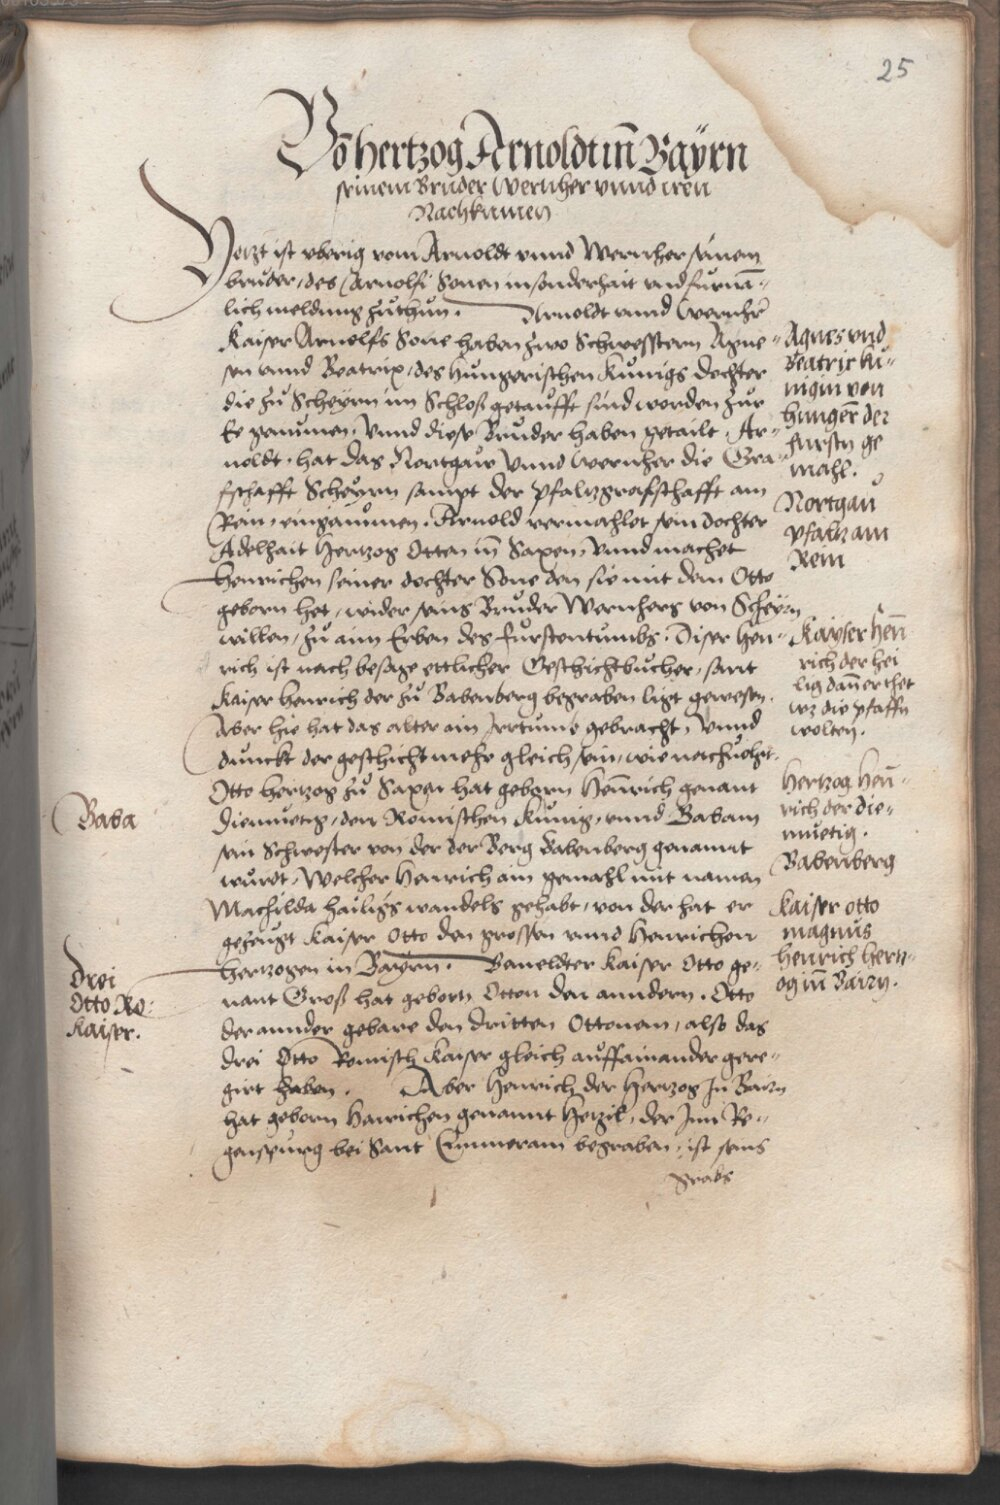 25
Võ hertzog Arnoldt in̄ Baÿrn
seinem Bruder Wernher vnnd iren
Nachkumen
Yetzt ist vberig vom Arnoldt vnnd Wernher seinem
bruder, des Arnolfi Sonen in sonderhait vnd furnā-
lich meldung zuthun. Arnoldt vnnd Wernher
Kaiser Arnolfs Sone haben zwo Schwesstern Agne-
sen vnnd Beatrix, des hungerischen Kunigs dochter
die zu Scheyrn im Schloß getaufft sind worden zur
Ee genumen. Vnnd diese Bruder haben getailt. Ar-
noldt hat das Nortgaw Vnnd Wernher die Gra-
fschafft Scheyrn sampt der Pfaltzgrafschafft am
Rein, eingenummen. Arnold vermahlet sein dochter
Adelhait Hertzog Otten in̄ Saxen, Vnnd machet
Henrichen seiner dochter Sone den sie mit dem Otto
geborn het, wider seins Bruder Wernhers von Scheyrn
willen, zu aim Erben des furstentumbs. Diser Hen-
rich ist nach besage ettlicher Geschichtbucher, sant
Kaiser Henrich der zu Babenberg begraben ligt gewesen.
Aber hie hat das alter ain Irrtumb gebracht, Vnnd
dunckt der geschicht mehr gleich sein, wie nachuolgt.
Otto Hertzog zu Saxen hat geborn Henrich genant
Diemuetig, den Romischen Kunig, vnnd Babam
sein Schwester von der der Berg Babenberg genannt
wurdt, Welcher Henrich ain gemahl mit namen
Machilda hailigs wandels gehabt, von der hat er
gezeugt Kaiser Otto den grossen vnnd Henrichen
Hertzogen in Bayrn. Bemeldter Kaiser Otto ge-
nant Groß hat geborn Otten den anndern. Otto
der annder gebare den dritten Ottonem, also das
drei Otto Romisch Kaiser gleich auffainander gere-
girt haben. Aber Henrich der Hertzog In Bairn
hat geborn Henrichen genannt Hezil, der Inn Re-
genspurg bei Sant Emmeram begraben, ist seins
Grabs
Agnes vnd
Beatrix ku-
nigin von
hungern der
fursten ge
mahl.
Nortgau
Pfaltz am
Rein
Kayser Hen̄
rich der hei
lig dan̄ er thet
wz die pfaffn
wolten.
Hertzog Hen̄-
rich der die-
muetig.
Babenberg
Kaiser otto
magnus
Henrich Hertz-
og in̄ Bairn.
Baba
Drei
Otto Ro:
Kaiser.